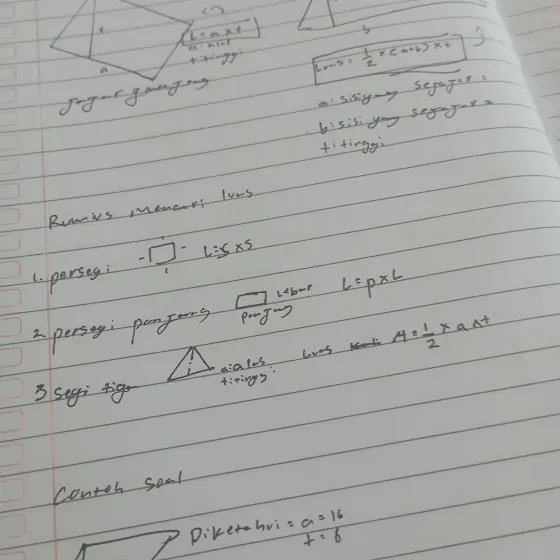 L = a x t
a: alas
t: tinggi
a
t
jajar genjang
b
Luas = 1/2 x (a+b) x t
a: sisi yang sejajar 1
b: sisi yang sejajar 2
t: tinggi
Rumus mencari luas
1. persegi L=s x s
2. persegi panjang Lebar panjang L = p x L
3 segi tiga a: alas t: tinggi Luas A = 1/2 x a x t
Contoh soal
Diketahui = a = 16
t = 8